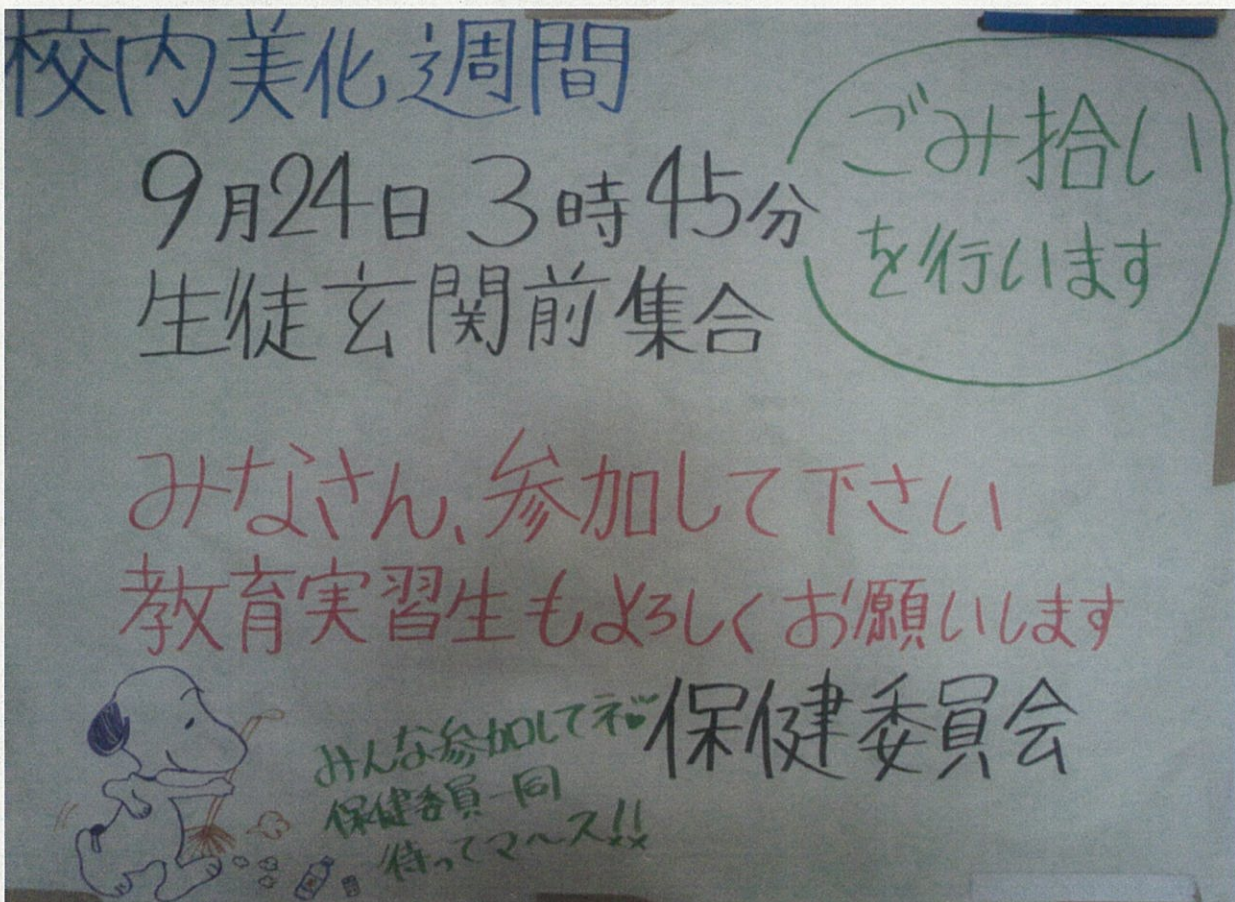 校内美化週間
9月24日 3時45分
生徒玄関前集合
ごみ拾い
を行います
みなさん、参加して下さい
教育実習生もよろしくお願いします
保健委員会
みんな参加してネ♥
保健委員一同
待ってマ～ス!!